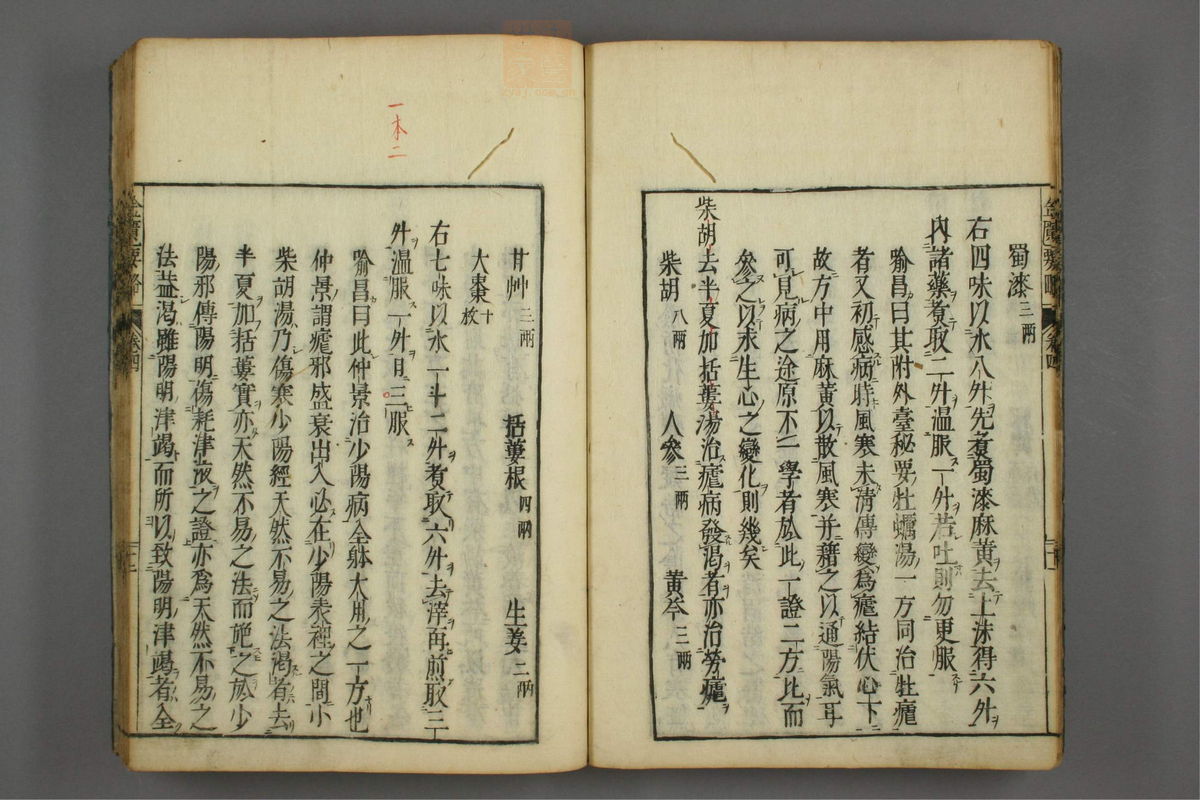 蜀漆三兩
右四味以水八升先煑蜀漆麻黃去上沫得六升
內諸藥煑取二升温服一升若吐則勿更服
喻昌曰其附外臺秘要牡蠣湯一方同治牡瘧
者又初感病時風寒未清傳變爲瘧結伏心下
故方中用麻黃以散風寒并藉之以通陽氣耳
可見病之途原不一學者於此一證二方比而
參之以求生心之變化則幾矣
柴胡去半夏加括蔞湯治瘧病發渴者亦治勞瘧
柴胡八兩 人參三兩 黃芩三兩
甘艸三兩 括蔞根四兩 生姜二兩
大棗十枚
右七味以水一斗二升煑取六升去滓再煎取三
升温服一升日三服
喻昌曰此仲景治少陽病全躰大用之一方也
仲景謂瘧邪盛衰出入必在少陽表裡之間小
柴胡湯乃傷寒少陽經天然不易之法渴者去
半夏加括蔞實亦天然不易之法而施之於少
陽邪傳陽明傷耗津液之證亦爲天然不易之
法蓋渴雖陽明津竭而所以致陽明津竭者全
一本二
金匱要略 卷四